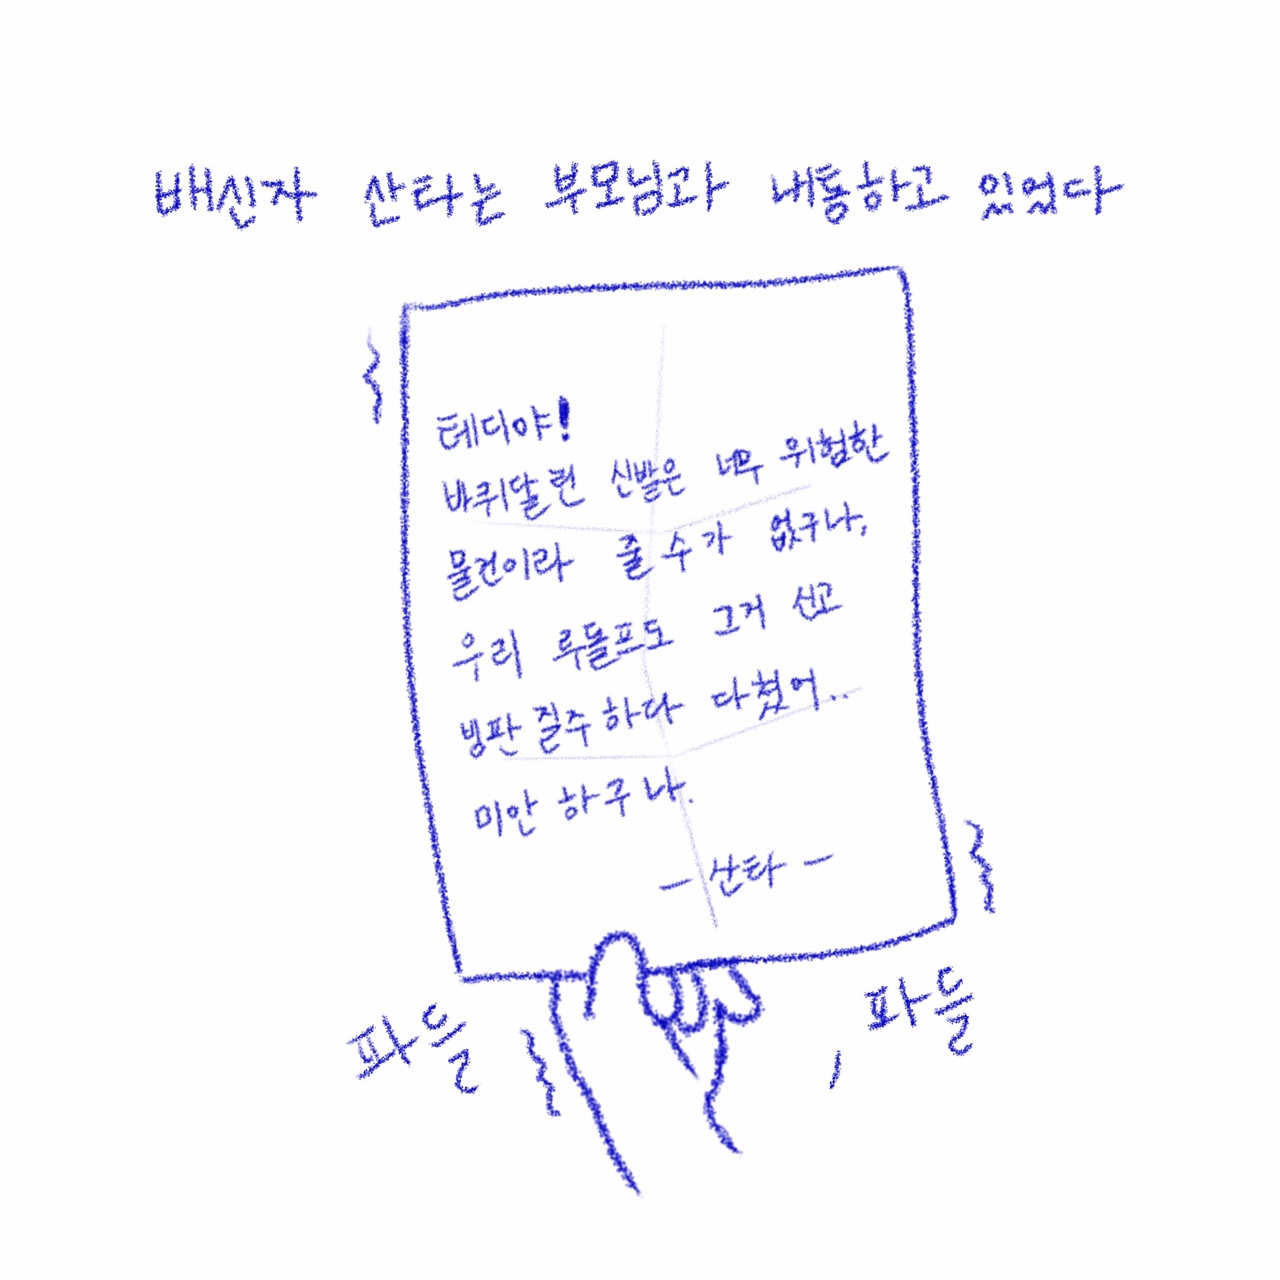 배신자 산타는 부모님과 내통하고 있었다
테디야!
바퀴달린 신발은 너무 위험한
물건이라 줄 수가 없구나,
우리 루돌프도 그거 신고
빙판 질주하다 다쳤어..
미안 하구나.
- 산타 -
파들
, 파들